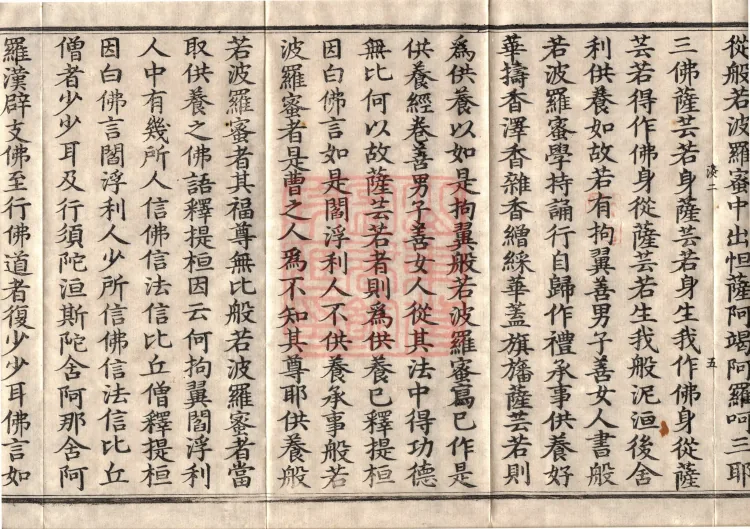 從般若波羅蜜中出怛薩阿竭阿羅呵三耶
淡二 五
三佛薩芸若身薩芸若身生我作佛身從薩
芸若得作佛身從薩芸若生我般泥洹後舍
利供養如故若有拘翼善男子善女人書般
若波羅蜜學持誦行自歸作禮承事供養好
華擣香澤香雜香繒綵華蓋旗旛薩芸若則
爲供養以如是拘翼般若波羅蜜寫已作是
供養經卷善男子善女人從其法中得功德
無比何以故薩芸若者則爲供養已釋提桓
因白佛言如是閻浮利人不供養承事般若
波羅蜜者是曹之人爲不知其尊耶供養般
若波羅蜜者其福尊無比般若波羅蜜者當
取供養之佛語釋提桓因云何拘翼閻浮利
人中有幾所人信佛信法信比丘僧釋提桓
因白佛言閻浮利人少所信佛信法信比丘
僧者少少耳及行須陀洹斯陀含阿那含阿
羅漢辟支佛至行佛道者復少少耳佛言如